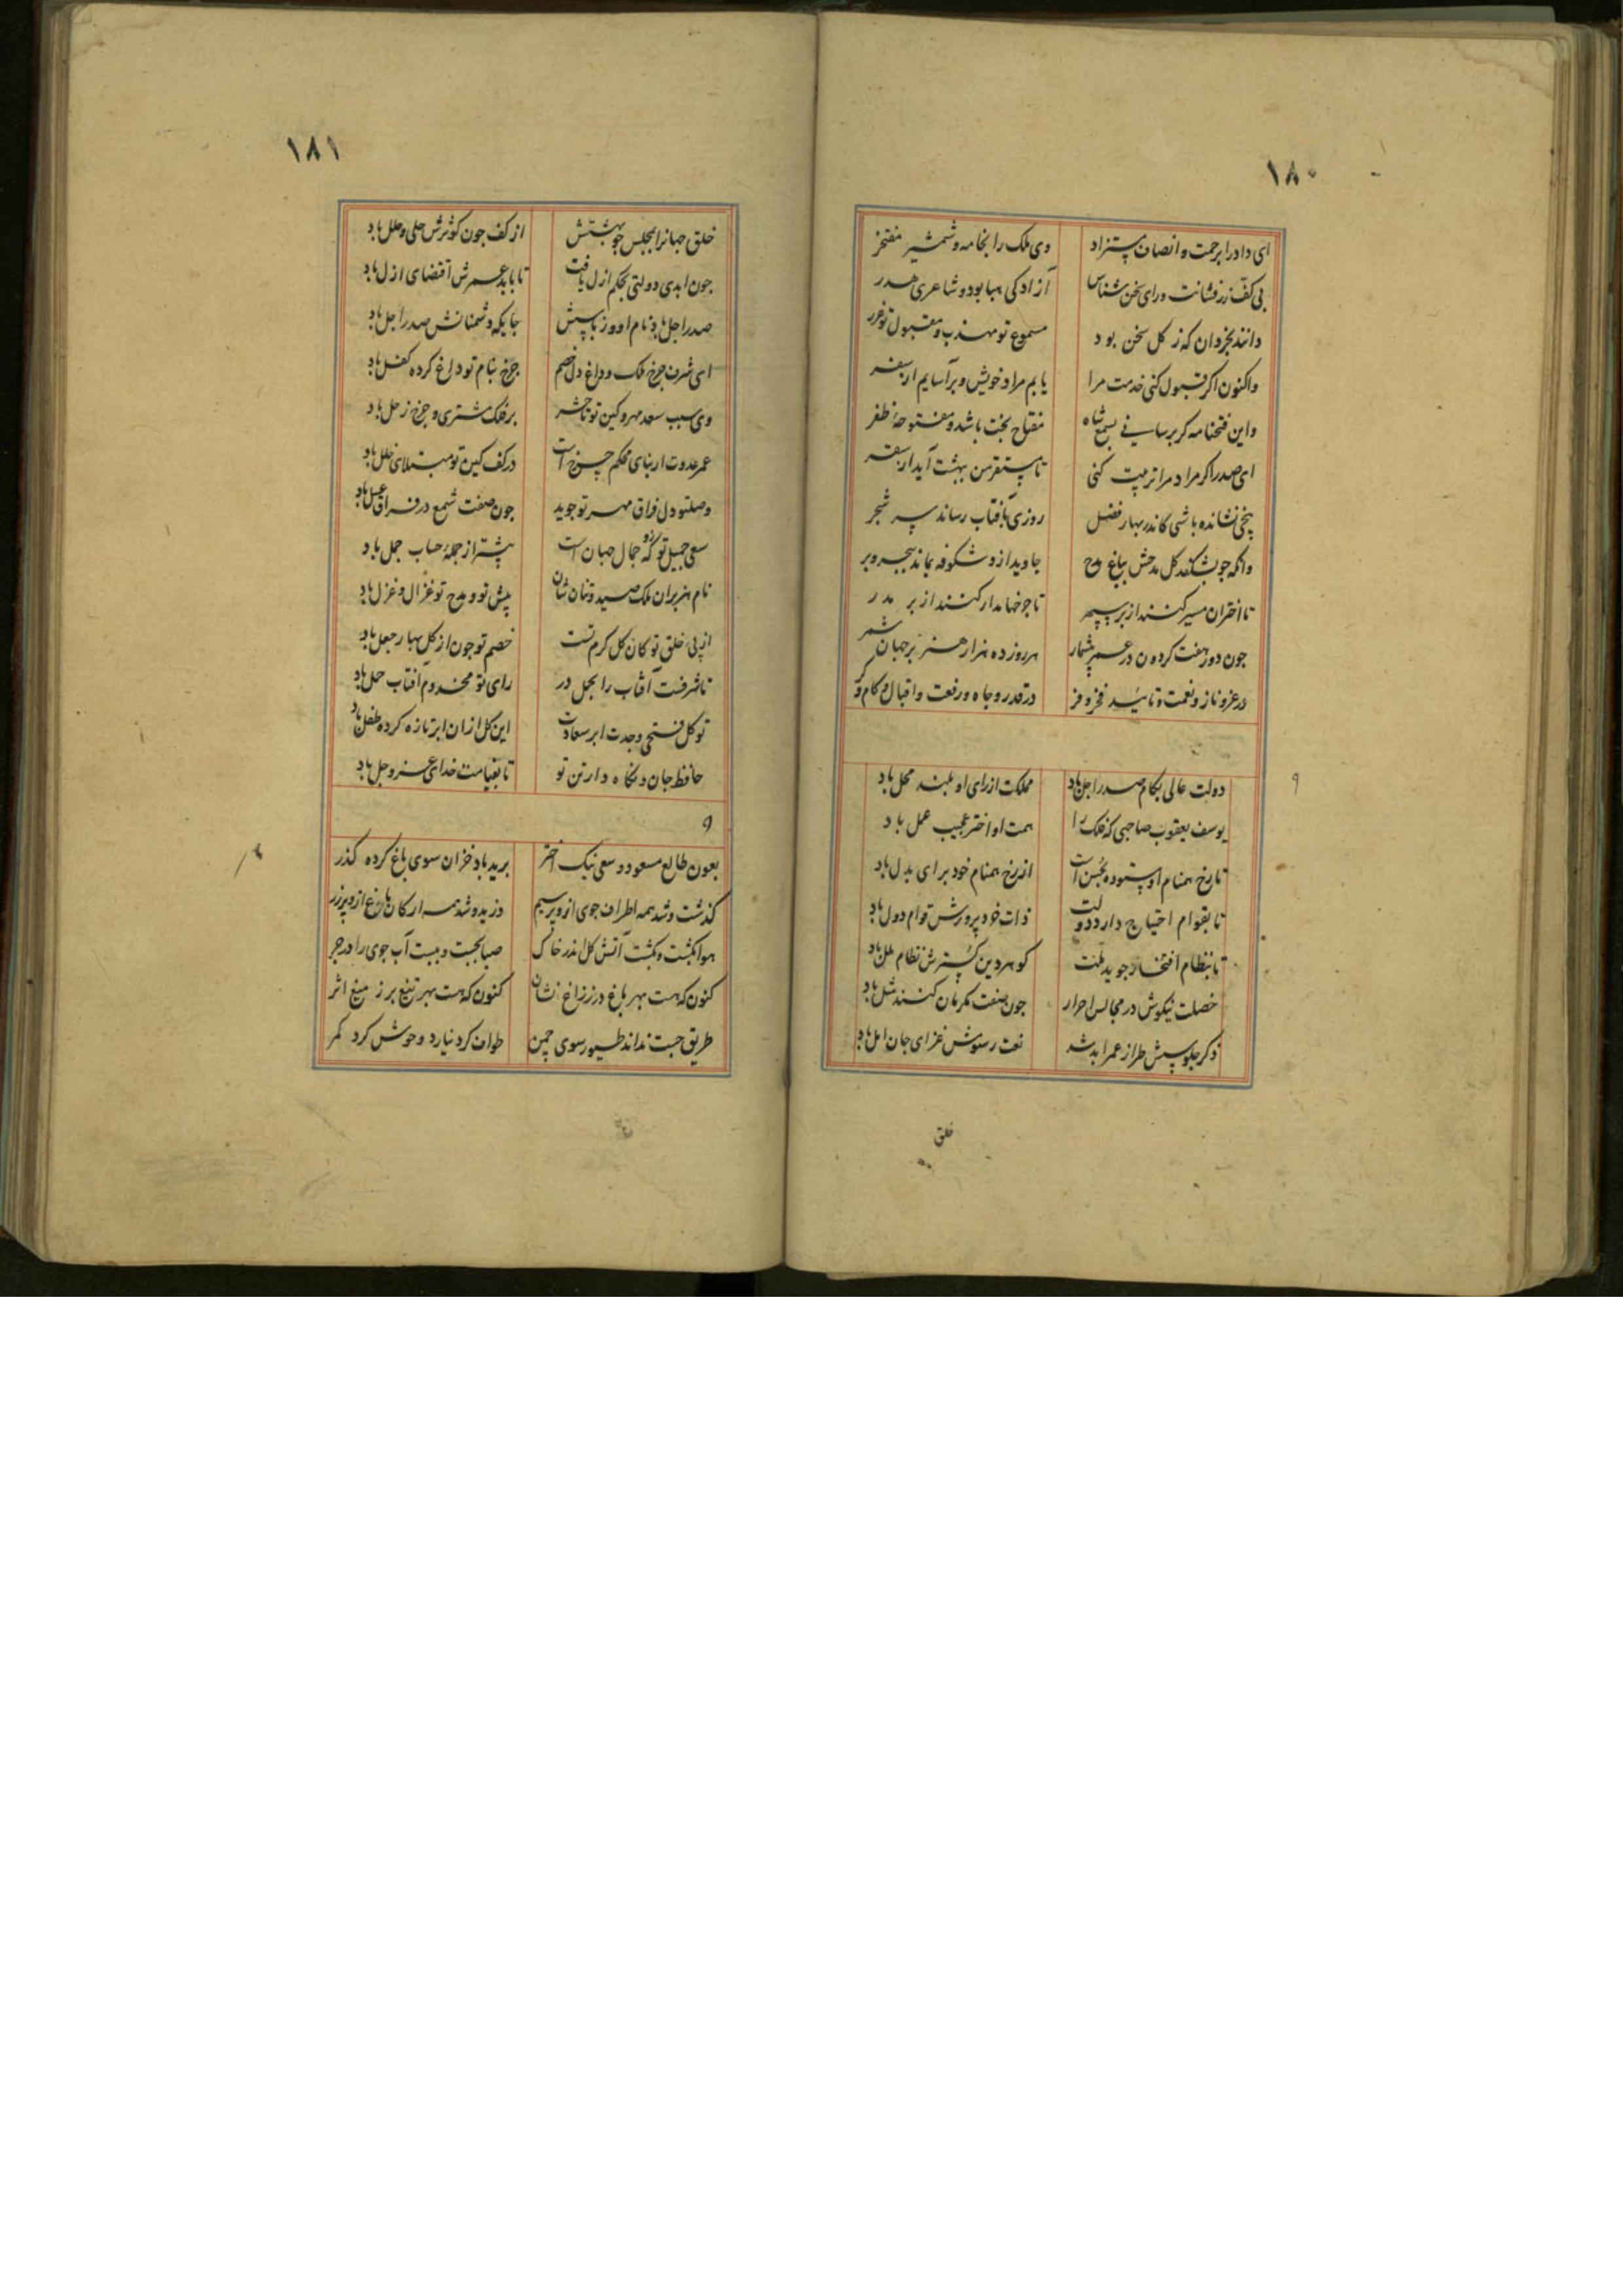 ۱۸۰
ای داد را برحمت و انصاف مستزاد وی ملک را بخامه و شمشیر مفتخر
بی کف زرفشانت و رای سخن شناس آزادکی هبا بود و شاعری هدر
دانند بخردان که ز کل سخن بود مسموع تو مهذب و مقبول تو غرر
واکنون اکر قبول کنی خدمت مرا یابم مراد خویش و برآسایم از سفر
واین فتحنامه کر برسانی بسمع شاه مفتاح بخت باشد و مفتوحهٔ ظفر
ای صدر اکر مراد مرا تربیت کنی تا مستقر من بهشت آید از سقر
بیخی نشانده باشی کاندر بهار فضل روزی بآفتاب رساند سر شجر
وانکه جو بشکفد کل مدحش بباغ مدح جاوید ازو شکوفه بماند ببحر و بر
تا اختران مسیر کنند از بر سپهر تا جرخها مدار کنند از بر مدر
جون دور هفت کردون در عمر بیشمار هر روز ده هزار هنر بر جهان شمر
در عز و ناز و نعمت و تایید فخر و فر در قدر و جاه و رفعت و اقبال و کام و کر
۹
دولت عالی بکام صدر اجل باد مملکت از رای او بلند محل باد
یوسف یعقوب صاحبی که فلک را همت او اختر عجیب عمل باد
تا رخ همنام او ستوده بحسن است از رخ همنام خود برای بدل باد
تا بقوام احتیاج دارد دولت ذات خرد پرورش قوام دول باد
تا بنظام افتخار جوید ملت کوهر دین کسترش نظام ملل باد
خصلت نیکوش در مجالس احرار جون صفت مکرمان کنند مثل باد
ذکر جلوسش طراز عمر ابد شد نعت رسومش غزای جان امل باد
خلق
۱۸۱
خلق جهانرا بمجلس جو بهشتش از کف جون کوثرش حلی و حلل باد
جون ابدی دولتی بحکم ازل یافت تا بابد عمرش اقتضای ازل باد
صدر اجل باد نام او و ز باسش جایکه دشمنانش صدر اجل باد
ای شرف جرخ ملک و داغ دل خصم جرخ بنام تو داغ کرده کفل باد
وی سبب سعد مهر و کین تو تا حشر بر فلک مشتری و جرخ زحل باد
عمر عدوت ار بنای محکم جرخ است در کف کین تو مبتلای خلل باد
وصلت و دل فراق مهر تو جوید جون صفت شمع در فراق عسل باد
سعی جمیل تو کزو جمال جهان است بیشتر از جملهٔ حساب جمل باد
نام هزبران ملک صید و تنان شان پیش تو و مدح تو غزال و غزل باد
از پی خلق تو کان کل کرم تست خصم تو جون از کل بهار جعل باد
تا شرفست آفتاب را بحمل در رای تو مخدوم آفتاب حمل باد
تو کل فتحی و جدت ابر سعادت این کل ازان ابر تازه کرده طلل باد
حافظ جان و نکاه دار تن تو تا بقیامت خدای عز و جل باد
۹
بعون طالع مسعود و سعی نیک اختر برید باد خزان سوی باغ کرده کذر
کذشت و شد همه اطراف جوی ازو پر سیم وزید و شد همه ارکان باغ ازو پر زر
هوا بکشت و بکشت آتش کل اندر خاک صبا بجست و ببست آب جوی را در جر
کنون که هست بهر باغ در ز زاغ نشان کنون که هست بهر تیغ بر ز میغ اثر
طریق جست نداند طیور سوی چمن طواف کرد نیارد وحوش کرد کمر